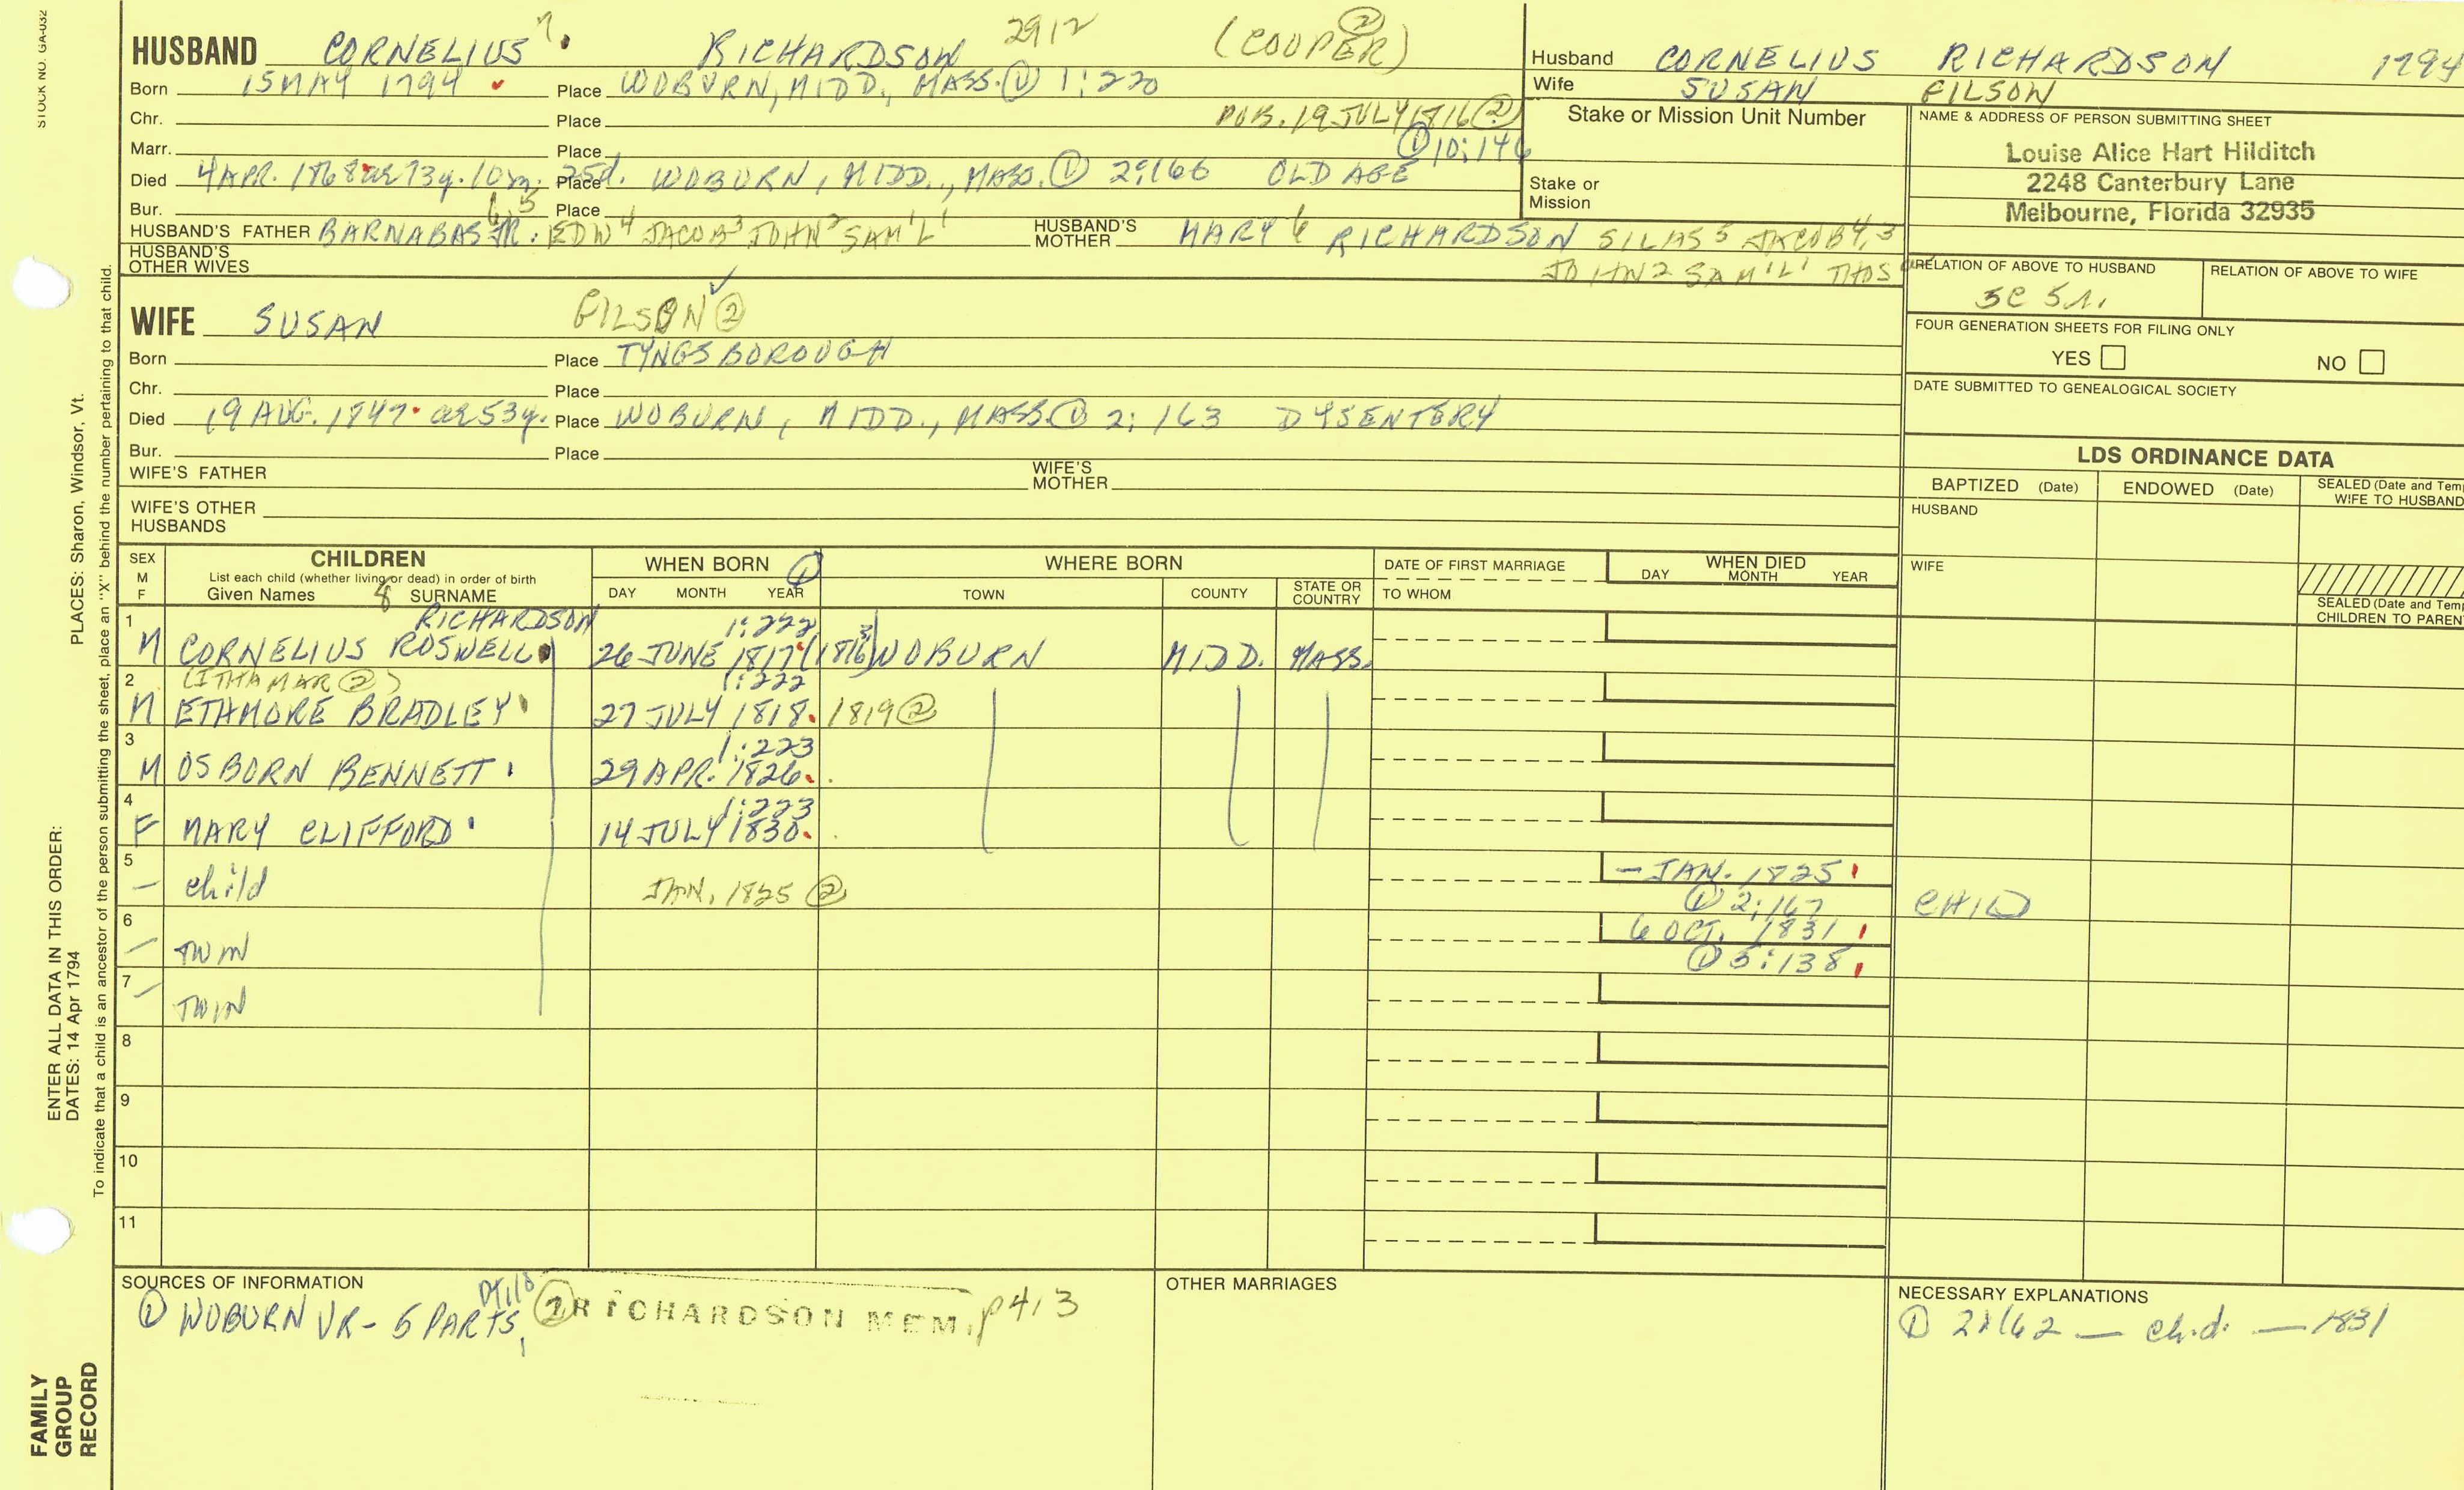 STOCK NO. GA-032
HUSBAND CORNELIUS 7 RICHARDSON 2912 (COOPER) ②
Born 15 MAY 1794 Place WOBURN, MIDD., MASS. ① 1:220
Chr. Place PUB. 19 JULY 1816 ②
Marr. Place ① 10:146
Died 4 APR. 1868 ae 73y. 10m. 25d. Place WOBURN, MIDD., MASS. ① 2:166 OLD AGE
Bur. Place
HUSBAND'S FATHER BARNABAS JR. 6,5 EDW 4 JACOB 3 JOHN 2 SAM'L 1 HUSBAND'S MOTHER MARY 6 RICHARDSON SILAS 5 JACOB 4,3
HUSBAND'S OTHER WIVES JOHN 2 SAM'L 1 THOS
WIFE SUSAN GILSON ②
Born Place TYNGSBOROUGH
Chr. Place
Died 19 AUG. 1847 ae 53y. Place WOBURN, MIDD., MASS. ① 2:163 DYSENTERY
Bur. Place
WIFE'S FATHER WIFE'S MOTHER
WIFE'S OTHER HUSBANDS
Husband CORNELIUS RICHARDSON 1794
Wife SUSAN GILSON
Stake or Mission Unit Number
Stake or Mission
NAME & ADDRESS OF PERSON SUBMITTING SHEET
Louise Alice Hart Hilditch
2248 Canterbury Lane
Melbourne, Florida 32935
RELATION OF ABOVE TO HUSBAND RELATION OF ABOVE TO WIFE
3C 5r.
FOUR GENERATION SHEETS FOR FILING ONLY
YES NO
DATE SUBMITTED TO GENEALOGICAL SOCIETY
LDS ORDINANCE DATA
BAPTIZED (Date) ENDOWED (Date) SEALED (Date and Tem
WIFE TO HUSBAND
HUSBAND
WIFE
SEALED (Date and Tem
CHILDREN TO PAREN
SEX M F CHILDREN WHEN BORN ① WHERE BORN DATE OF FIRST MARRIAGE WHEN DIED
List each child (whether living or dead) in order of birth
Given Names 8 SURNAME DAY MONTH YEAR TOWN COUNTY STATE OR COUNTRY TO WHOM DAY MONTH YEAR
RICHARDSON 1:222
1 M CORNELIUS ROSWELL 26 JUNE 1817 WOBURN MIDD. MASS.
(ITHAMAR ②) 1:222
2 M ETHMORE BRADLEY 27 JULY 1818 1819 ②
1:223
3 M OSBORN BENNETT 29 APR. 1826
1:223
4 F MARY CLIFFORD 14 JULY 1830
5 — child JAN. 1825 ② — JAN. 1825 ① 2:167 CHILD
6 — TWIN 6 OCT. 1831 ① 5:138
7 — TWIN
8
9
10
11
SOURCES OF INFORMATION
① WOBURN VR - 5 PARTS, ② RICHARDSON MEM. p 413
OTHER MARRIAGES
NECESSARY EXPLANATIONS
① 2:162 — ch.d. — 1831
PLACES: Sharon, Windsor, Vt.
ENTER ALL DATA IN THIS ORDER:
DATES: 14 Apr 1794
To indicate that a child is an ancestor of the person submitting the sheet, place an "X" behind the number pertaining to that child.
FAMILY GROUP RECORD